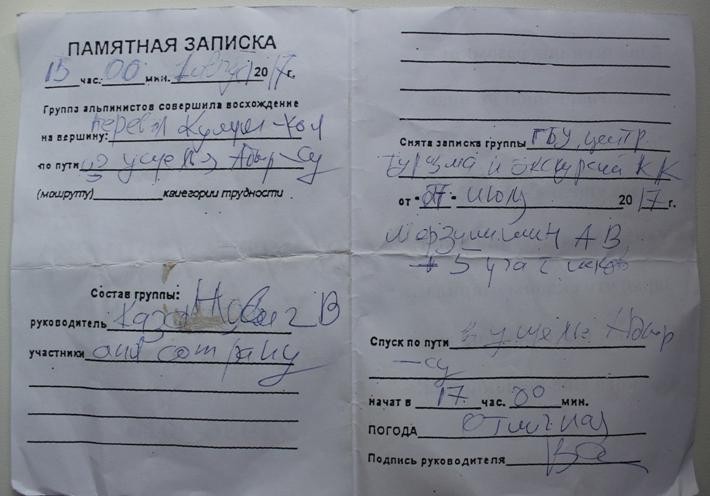 ПАМЯТНАЯ ЗАПИСКА
15 час. 00 мин. 2017 г.
Группа альпинистов совершила восхождение
на вершину: перевал
по пути из ущелья Адыр-Су
(маршруту) категории трудности
Состав группы:
руководитель
участники and company
Снята записка группы ГБУ центр
туризма и экскурсий КК
от июля 2017 г.
АВ
+ 5 участников
Спуск по пути в ущелье Адыр
-су
начат в 17 час. 00 мин.
ПОГОДА отличная
Подпись руководителя